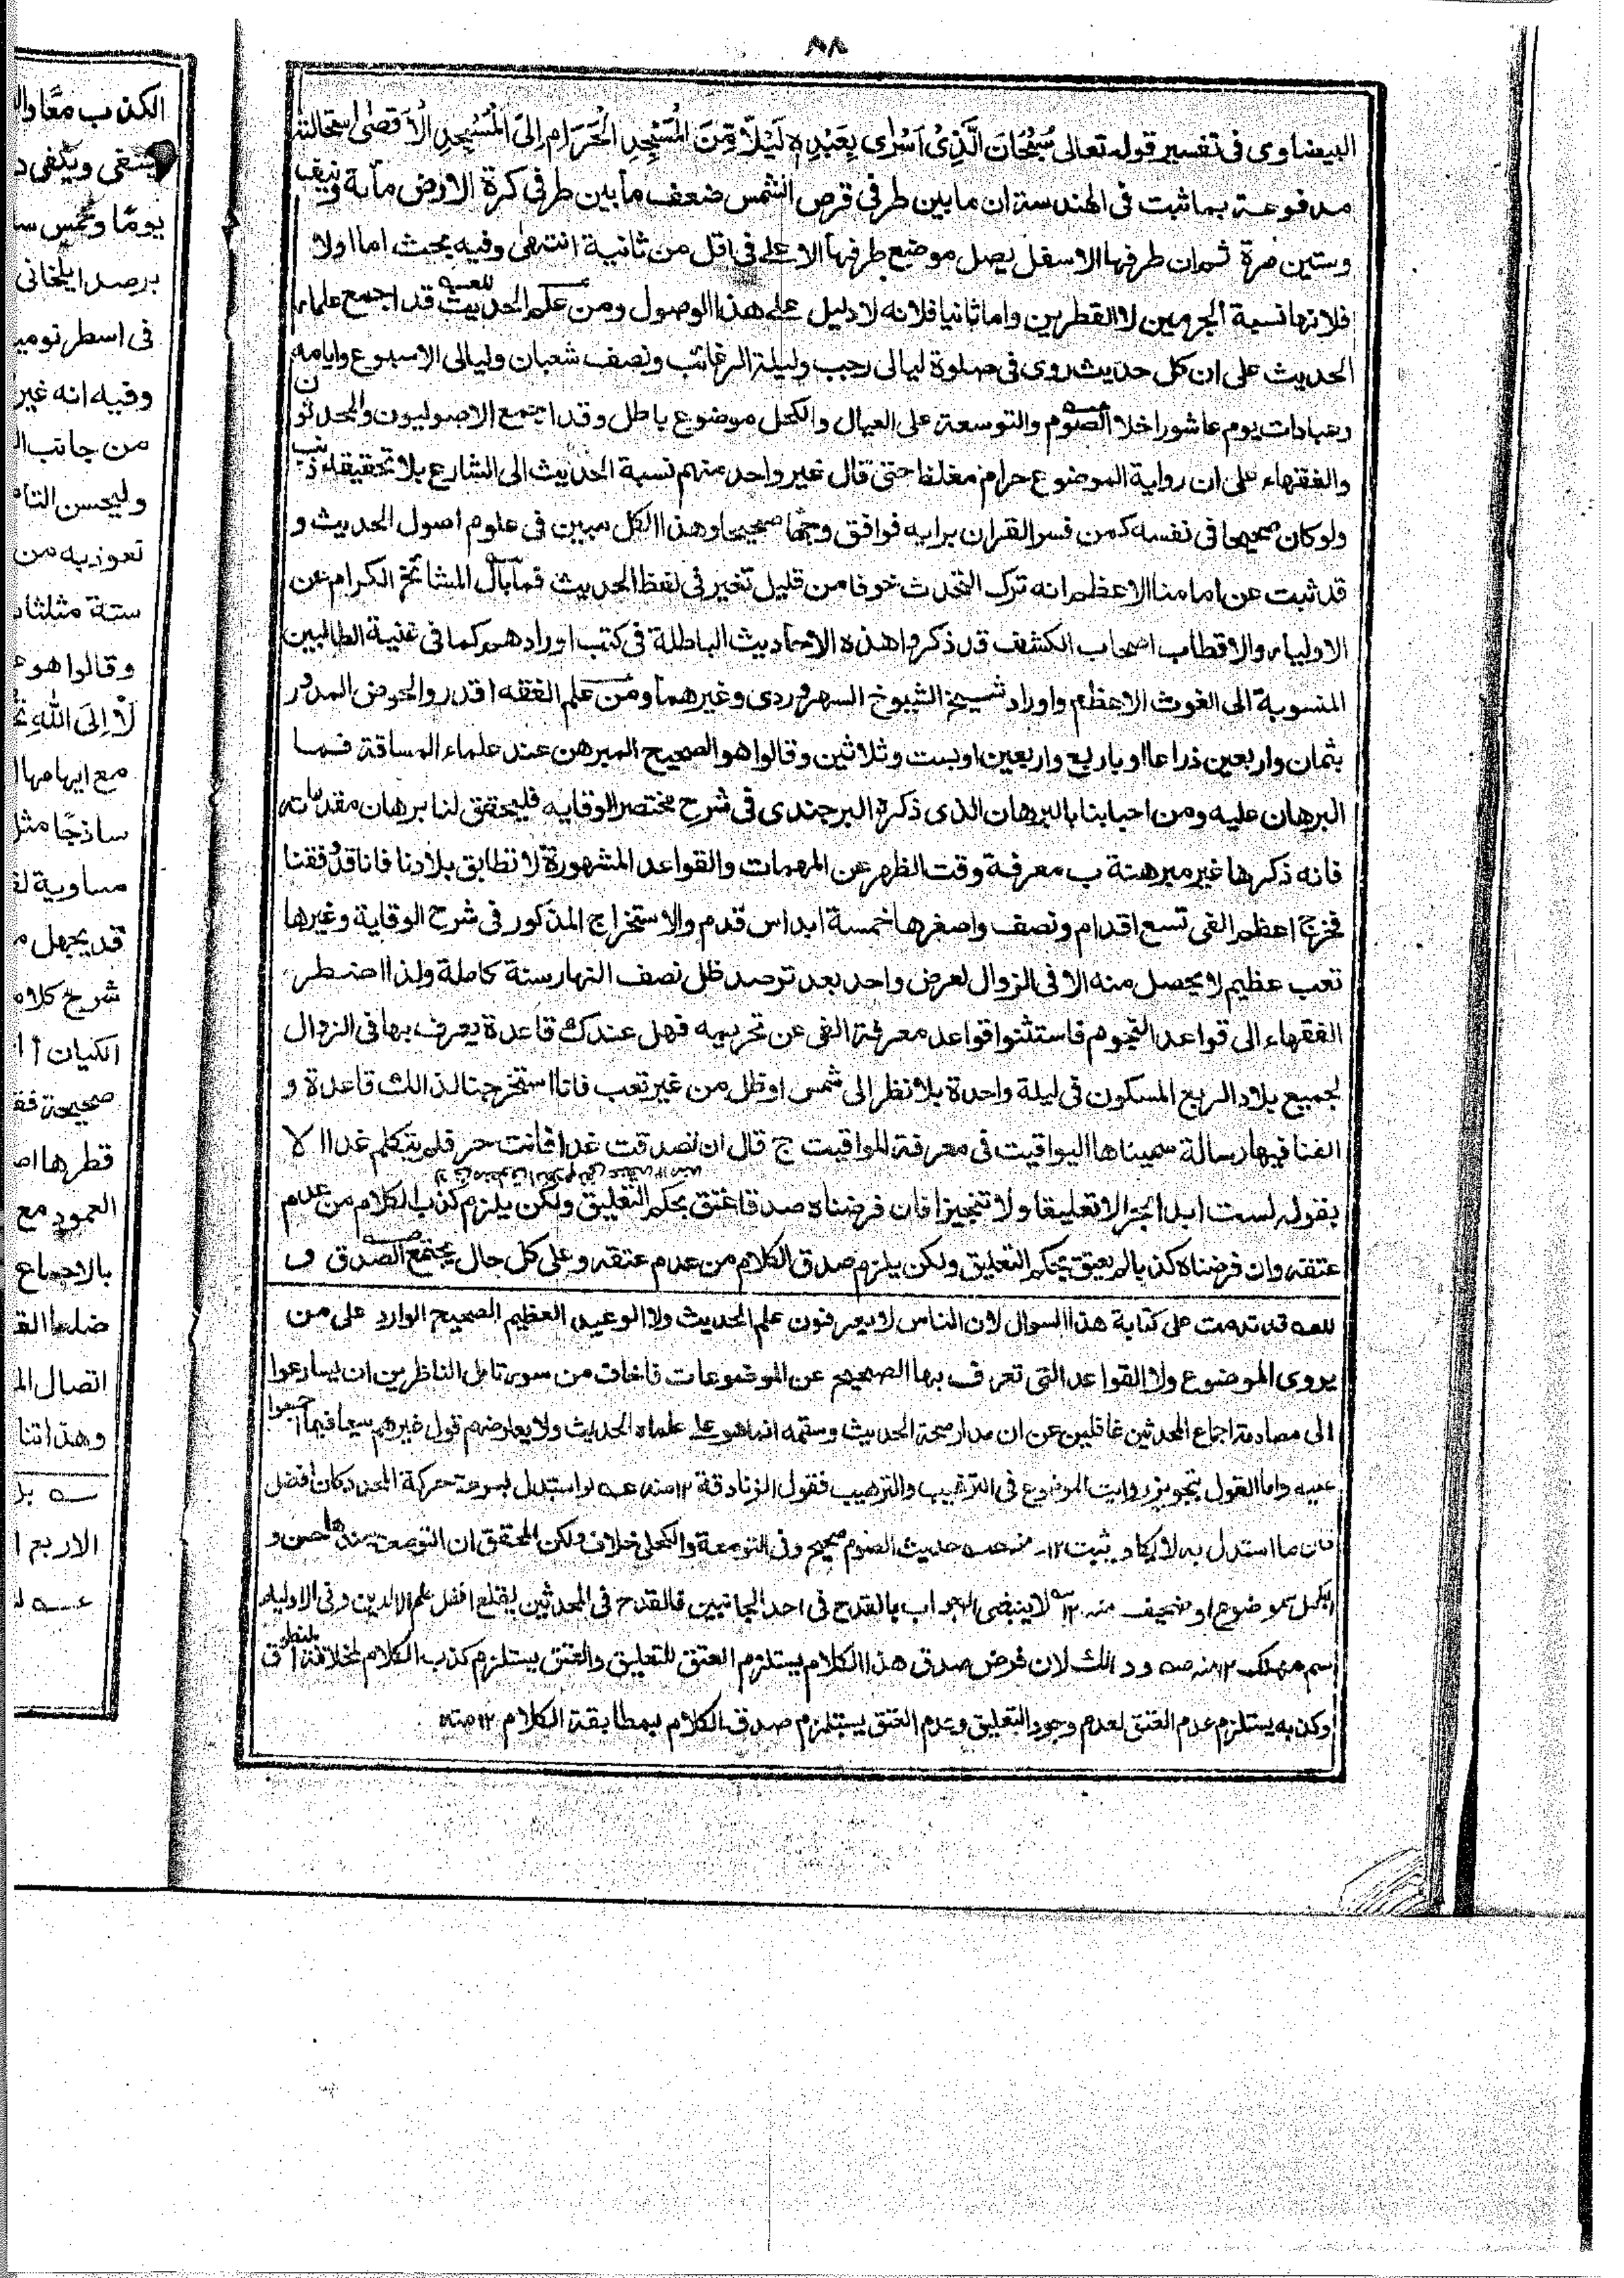 ٨٨
البيضاوى فى تفسير قوله تعالى سُبْحَانَ الَّذِىْ اَسْرٰى بِعَبْدِهٖ لَيْلًا مِّنَ الْمَسْجِدِ الْحَرَامِ اِلَى الْمَسْجِدِ الْاَقْصٰى استحالته
مدفوعة بما ثبت فى الهندسة ان ما بين طرفى قرص الشمس ضعف ما بين طرفى كرة الارض مأية ونيف
وستين مرة ثم ان طرفها الاسفل يصل موضع طرفها الاعلى فى اقل من ثانية انتهى وفيه بحث اما اولا
فلانها نسبة الجرمين لا القطرين واما ثانيا فلانه لا دليل على هذا الوصول ومن علم الحديث قد اجمع علماء
الحديث على ان كل حديث روى فى صلوة ليالى رجب وليلة الرغائب ونصف شعبان وليالى الاسبوع وايامه
وعبادات يوم عاشورا خلا الصوم والتوسعة على العيال والكحل موضوع باطل وقد اجتمع الاصوليون والمحدثون
والفقهاء على ان رواية الموضوع حرام مغلظ حتى قال غير واحد منهم نسبة الحديث الى الشارع بلا تحقيق ذنب
ولو كان صحيحا فى نفسه كمن فسر القران برايه فوافق وجها صحيحا وهذا الكل مبين فى علوم اصول الحديث و
قد ثبت عن امامنا الاعظم انه ترك التحدث خوفا من قليل تغير فى لفظ الحديث فما بال المشائخ الكرام من
الاولياء والاقطاب اصحاب الكشف قد ذكروا هذه الاحاديث الباطلة فى كتب اورادهم كما فى غنية الطالبين
المنسوبة الى الغوث الاعظم واوراد شيخ الشيوخ السهروردى وغيرهما ومن علم الفقه ا قدروا الحوض المدور
بثمان واربعين ذراعا او باربع واربعين او بست وثلاثين وقالوا هو الصحيح المبرهن عند علماء المساقة فما
البرهان عليه ومن اجابنا بالبرهان الذى ذكره البرجندى فى شرح مختصر الوقايه فليحقق لنا برهان مقدماته
فانه ذكرها غير مبرهنة ب معرفة وقت الظهر عن المهمات والقواعد المشهورة لا تطابق بلادنا فانا قد فقنا
فخرجنا اعظم الفى تسع اقدام ونصف واصغرها خمسة اسداس قدم والاستخراج المذكور فى شرح الوقاية وغيرها
تعب عظيم لا يحصل منه الا فى الزوال لعرض واحد بعد ترصد ظل نصف النهار سنة كاملة ولذا اضطر
الفقهاء الى قواعد النجوم فاستثنوا قواعد معرفة الفى عن تحريمه فهل عندك قاعدة يعرف بها فى الزوال
لجميع بلاد الربع المسكون فى ليلة واحدة بلا نظر الى شمس او ظل من غير تعب فانا استخرجنا لذالك قاعدة و
الفنا فيها رسالة سميناها اليواقيت فى معرفة المواقيت ج قال ان تصدقت غدا فانت حر فلم يتكلم غدا الا
بقوله لست ابدا حرا لا تعليقا ولا تنجيزا فان فرضناه صدقا عتق بحكم التعليق ولكن يلزم كذب الكلام من عدم
عتقه وان فرضناه كذبا لم يعتق بحكم التعليق ولكن يلزم صدق الكلام من عدم عتقه وعلى كل حال يجتمع الصدق و
للعه قد ندمت على كتابة هذا السوال لان الناس لا يعرفون علم الحديث ولا الوعيد العظيم الصحيح الوارد على من
يروى الموضوع ولا القواعد التى تعرف بها الصحيح عن الموضوعات فاخاف من سوء تامل الناظرين ان يسارعوا
الى مصادمة اجماع المحدثين غافلين عن ان مدار صحة الحديث وسقمه انما هو على علماء الحديث ولا يعارضهم قول غيرهم سيما فيما اجمعوا
عليه واما القول بتجويز روايت الموضوع فى الترغيب والترهيب فقول الزنادقة ١٢ منه عه لو استدل بسرعة حركة المحدد كان افضل
فان ما استدل به لا يكاد يثبت ١٢ منه حديث الصوم صحيح وفى التوسعة والكحل خلاف ولكن المحقق ان التوسعة حسن و
الكحل موضوع او ضعيف منه ١٢ لا ينبغى الجواب بالقدح فى احد الجانبين فالقدح فى المحدثين يقلع علم الدين وفى الاولياء
سم مهلك ١٢ منه وذالك لان فرض صدق هذا الكلام يستلزم العتق للتعليق والعتق يستلزم كذب الكلام
وكذبه يستلزم عدم العتق لعدم وجود التعليق وعدم العتق يستلزم صدق الكلام بمطابقة الكلام ١٢ منه
الكذب معًا
يومًا وخمس
برصد ايلخانى
فى اسطر
وفيه انه غير
من جانب
وليحسن
تعوذ به من
ستة
وقالوا هو
لَا اِلَى اللهِ
مع ايهامها
ساذجًا مثل
مساوية
قد يجهل
شرح
الكيان
صحيحة
قطرها
العمود مع
بالاجماع
ضلعا
اتصال
وهذا
الاربع